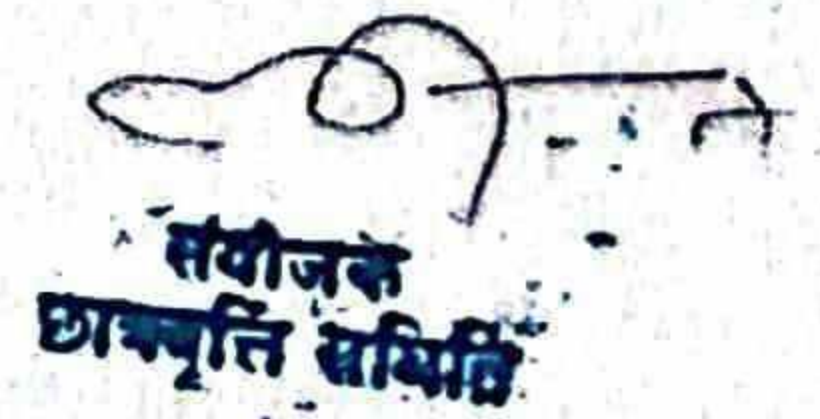 संयोजक
छात्रवृत्ति समिति